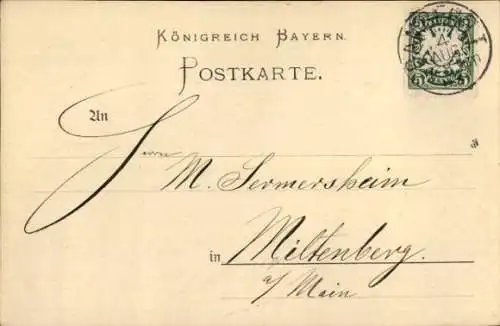 KÖNIGREICH BAYERN.
POSTKARTE.
4
AUG
An
Herrn
M. Sermersheim
in Miltenberg.
a/ Main